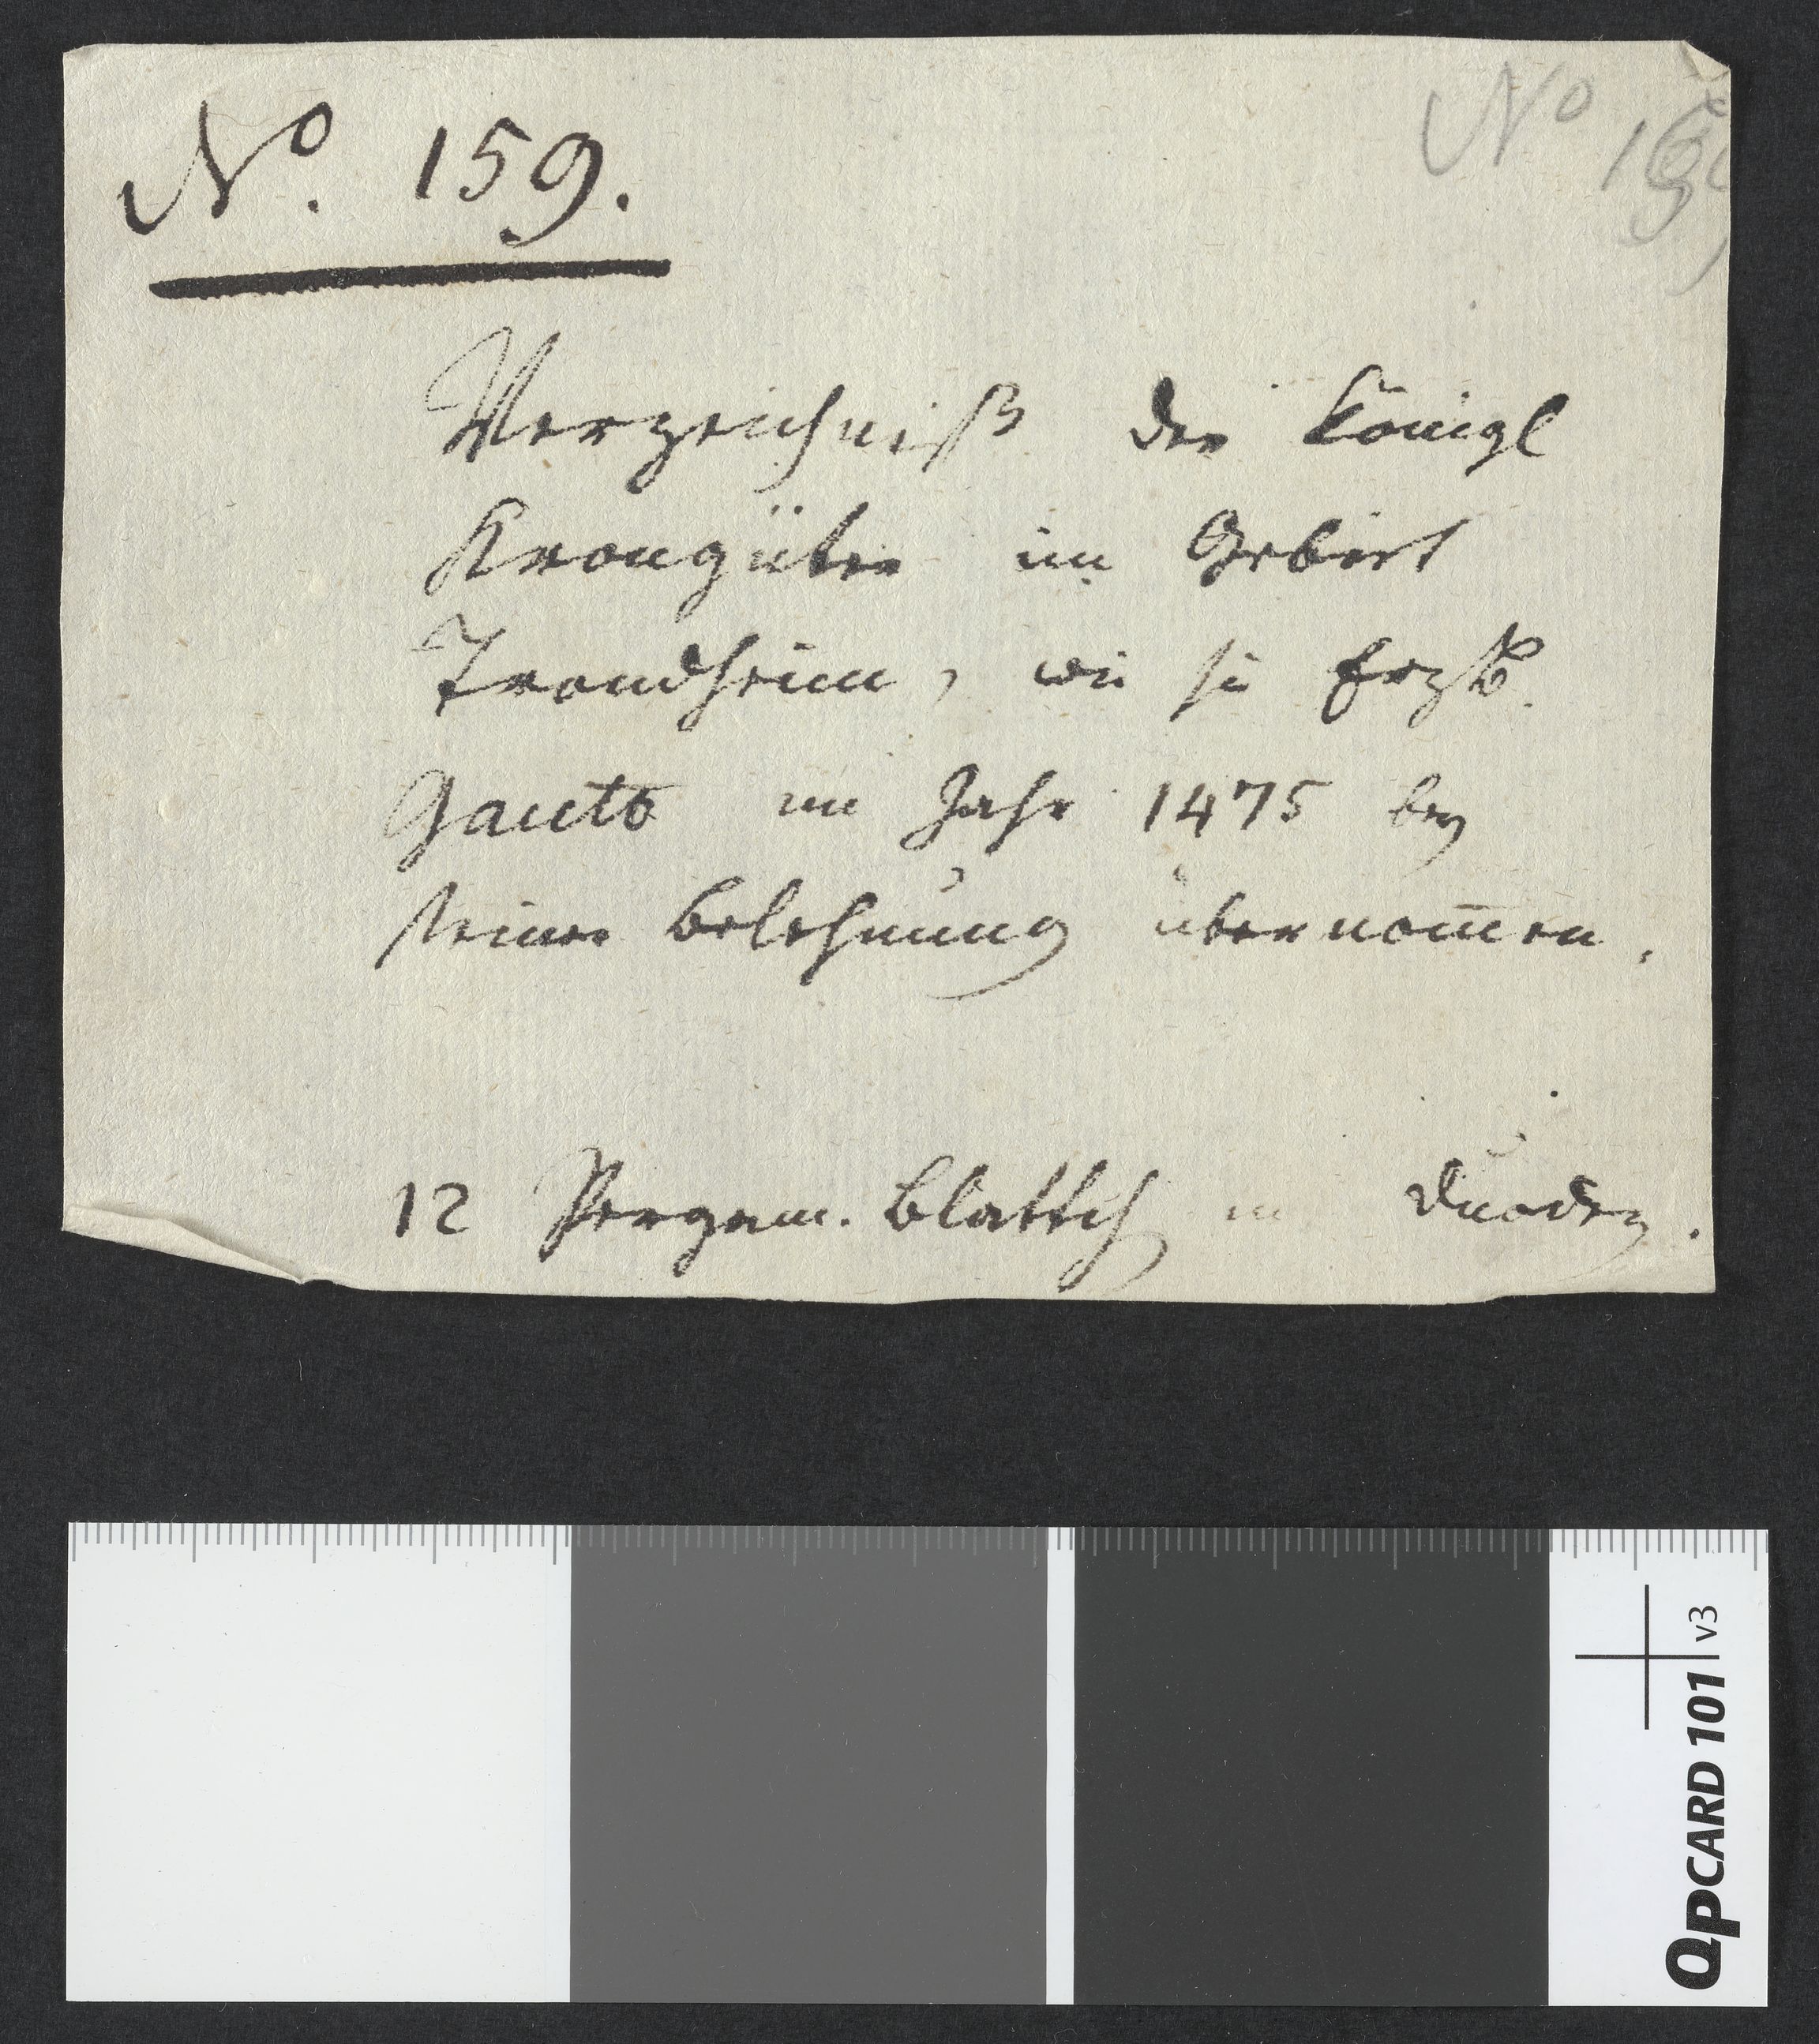 No. 159.
No
Verzeichniß der Königl
Krongüter im Gebiet
Trondheim, wie sie Erzb.
Gauto im Jahr 1475 bey
seiner Belehnung übernom̄en.
12 Pergam. Blattch in Duodez.
QPCARD 101 v3